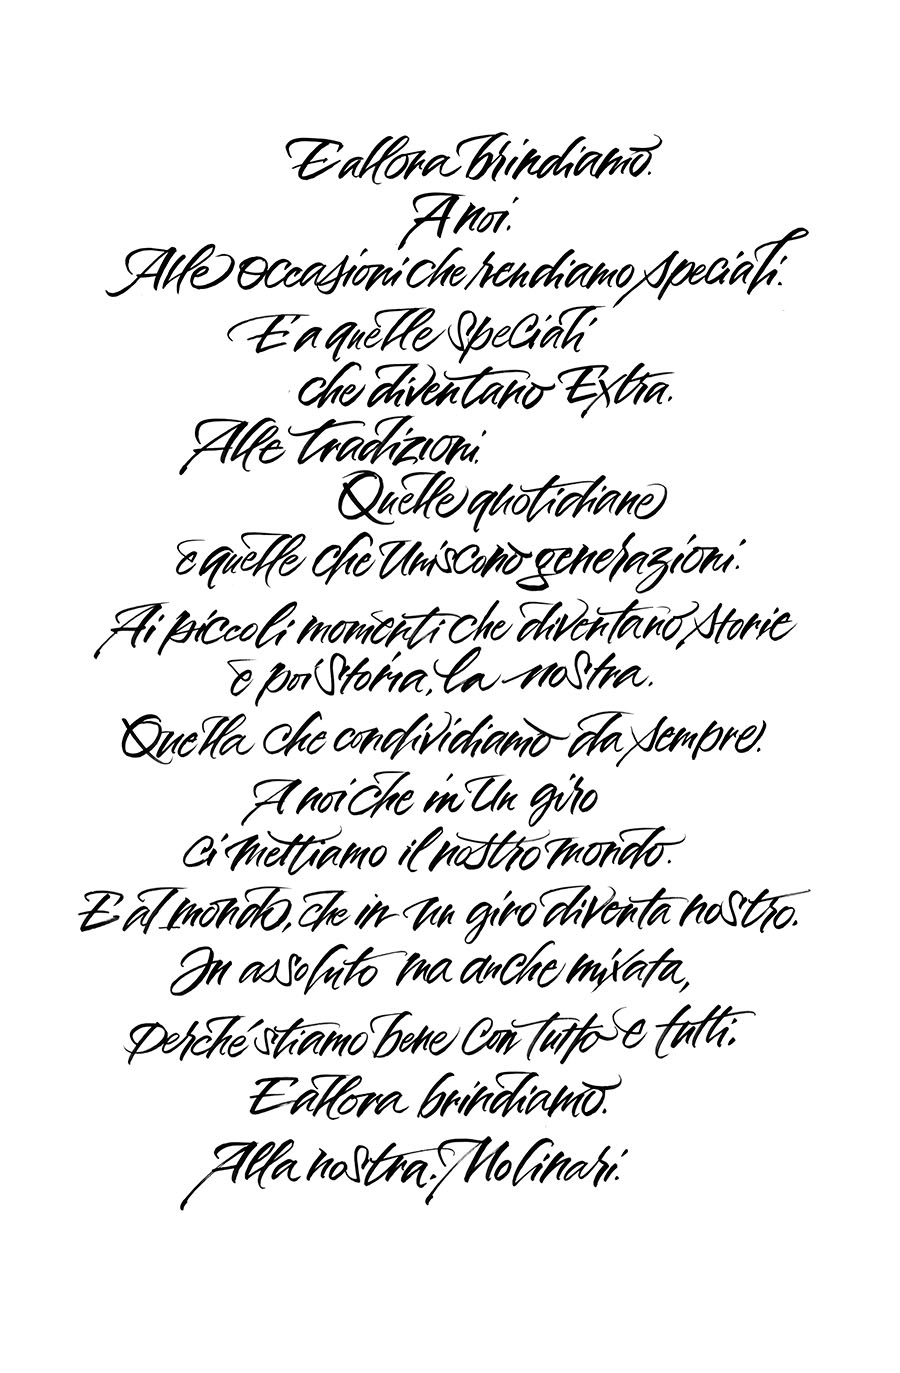 E allora brindiamo.
A noi.
Alle occasioni che rendiamo speciali.
E a quelle speciali
che diventano Extra.
Alle tradizioni.
Quelle quotidiane
e quelle che uniscono generazioni.
Ai piccoli momenti che diventano storie
e poi storia, la nostra.
Quella che condividiamo da sempre.
A noi che in un giro
ci mettiamo il nostro mondo.
E al mondo, che in un giro diventa nostro.
In assoluto ma anche mixata,
perché stiamo bene con tutto e tutti.
E allora brindiamo.
Alla nostra. Molinari.